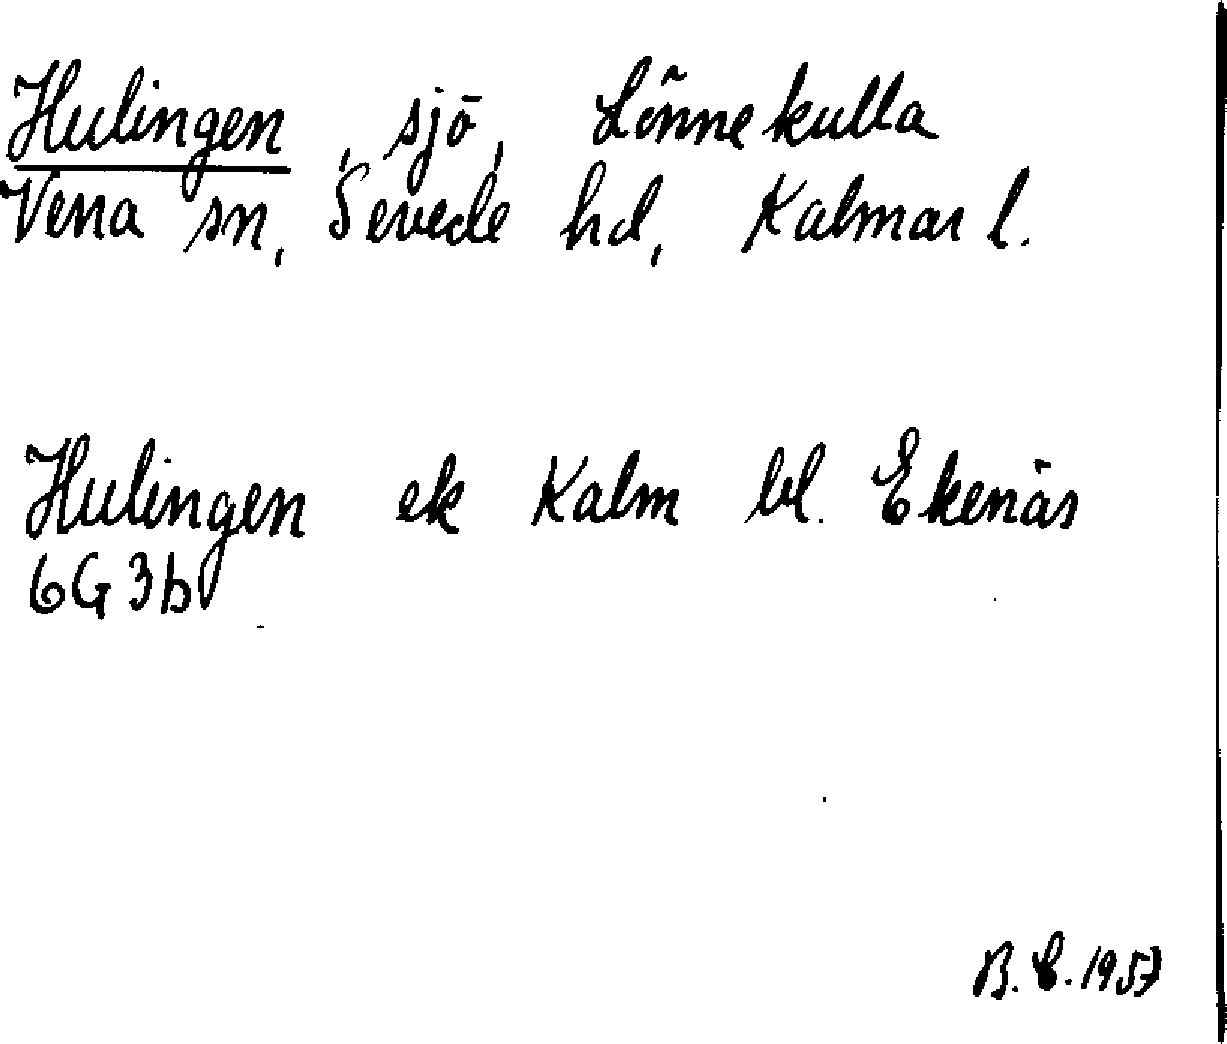 Hulingen, sjö, Lönnekulla
Vena sn, Sevede hd, Kalmar l.
Hulingen ek Kalm bl. Ekenäs
6G 3b
B. E. 1957